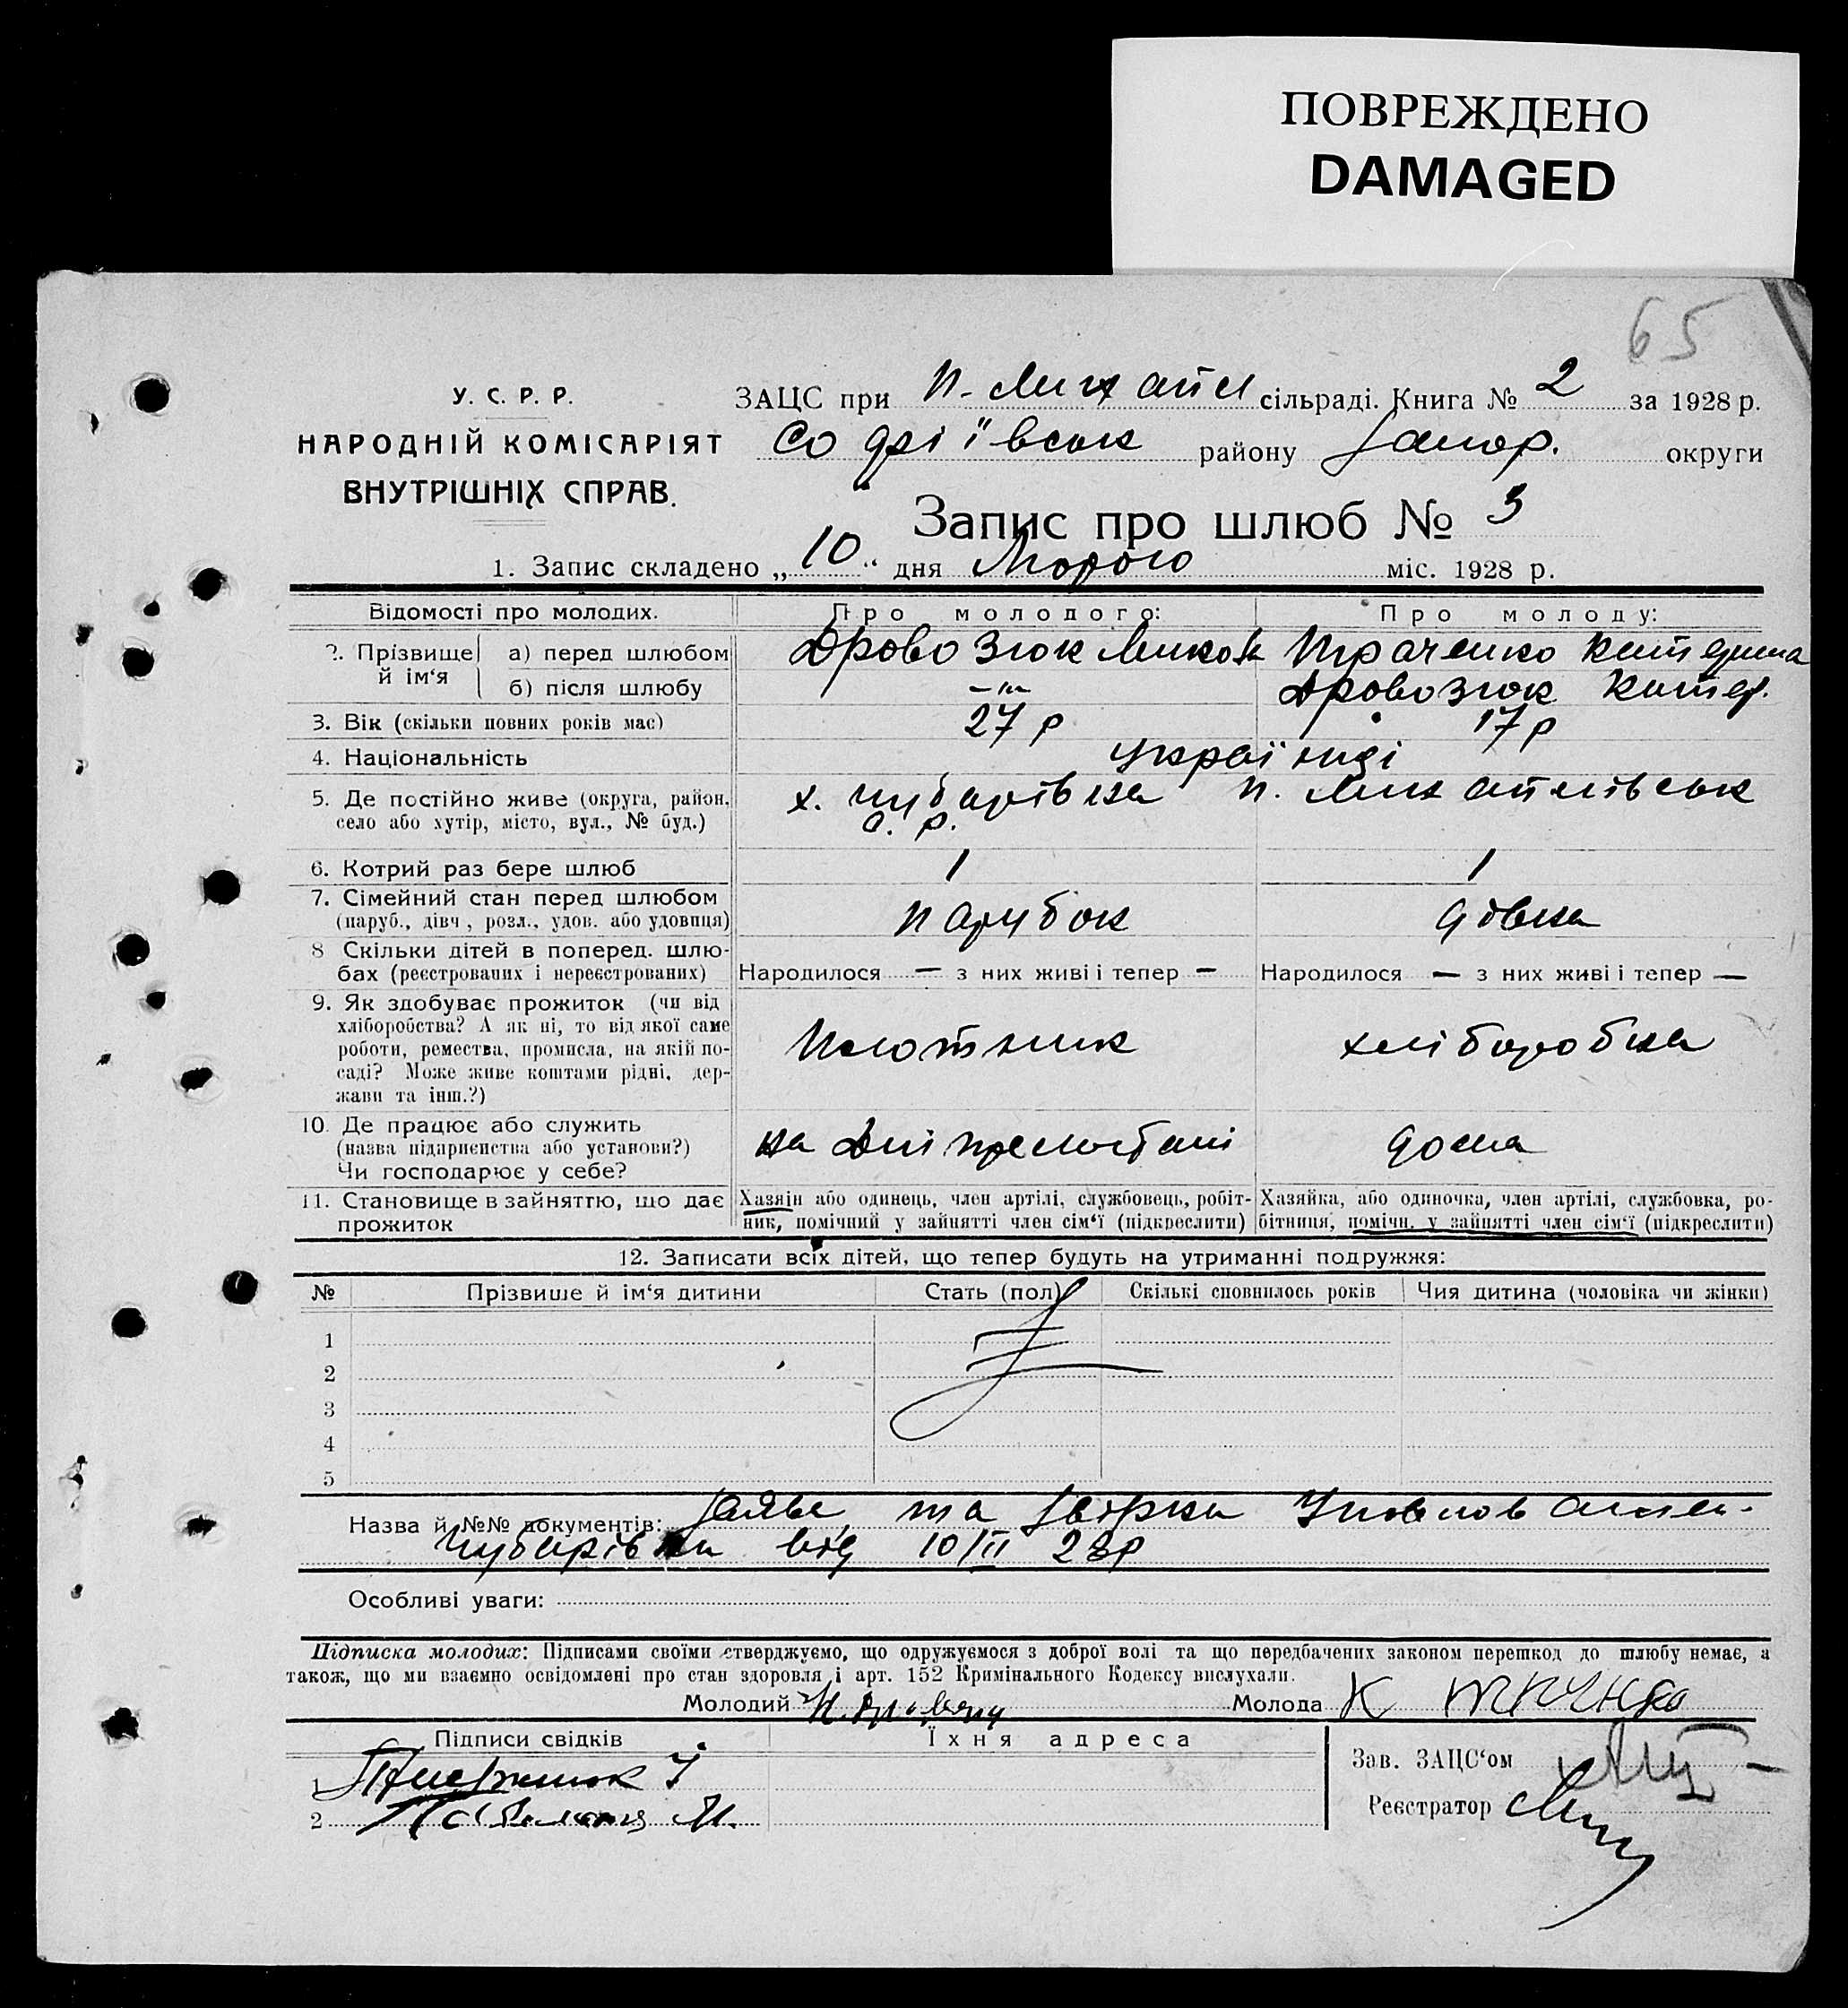 ПОВРЕЖДЕНО
DAMAGED
65
У. С. Р. Р.
НАРОДНІЙ КОМІСАРІЯТ
ВНУТРІШНІХ СПРАВ.
ЗАЦС при Н.-Михайл сільраді. Книга № 2 за 1928 р.
Софіївськ району Запор. округи
Запис про шлюб № 3
1. Запис складено „10“ дня Лютого міс. 1928 р.
Відомості про молодих. Про молодого: Про молоду:
2. Прізвище й ім‘я а) перед шлюбом Дровозюк Микола Ткаченко Катерина
б) після шлюбу –"– Дровозюк Катер.
3. Вік (скільки повних років має) 27 р 17 р
4. Національність Українці
5. Де постійно живе (округа, район, х. Чубарівка Н. Михайлівськ
село або хутір, місто, вул., № буд.) с. р.
6. Котрий раз бере шлюб 1 1
7. Сімейний стан перед шлюбом
(паруб., дівч., розл., удов. або удовиця) парубок дівка
8 Скільки дітей в поперед. шлю-
бах (реєстрованих і нереєстрованих) Народилося — з них живі і тепер — Народилося — з них живі і тепер —
9. Як здобуває прожиток (чи від
хліборобства? А як ні, то від якої саме
роботи, ремества, промисла, на якій по- Плотник хліборобка
саді? Може живе коштами рідні, дер-
жави та інш.?)
10. Де працює або служить
(назва підприємства або установи?) на Дніпрельстані дома
Чи господарює у себе?
11. Становище в зайняттю, що дає Хазяїн або одинець, член артілі, службовець, робіт- Хазяйка, або одиночка, член артілі, службовка, ро-
прожиток ник, помічний у зайнятті член сім‘ї (підкреслити) бітниця, помічн. у зайнятті член сім‘ї (підкреслити)
12. Записати всіх дітей, що тепер будуть на утриманні подружжя:
№ Прізвище й ім‘я дитини Стать (пол) Скількі сповнилось років Чия дитина (чоловіка чи жінки)
1
2
3
4
5
Назва й №№ документів: Заяви та Звірки Уповнов
Чубарівки від 10/II 28р
Особливі уваги:
Підписка молодих: Підписами своїми стверджуємо, що одружуємося з доброї волі та що передбачених законом перешкод до шлюбу немає, а
також, що ми взаємно освідомлені про стан здоровля і арт. 152 Кримінального Кодексу вислухали.
Молодий Молода К
Підписи свідків Їхня адреса
Зав. ЗАЦС‘ом
1
Реєстратор
2